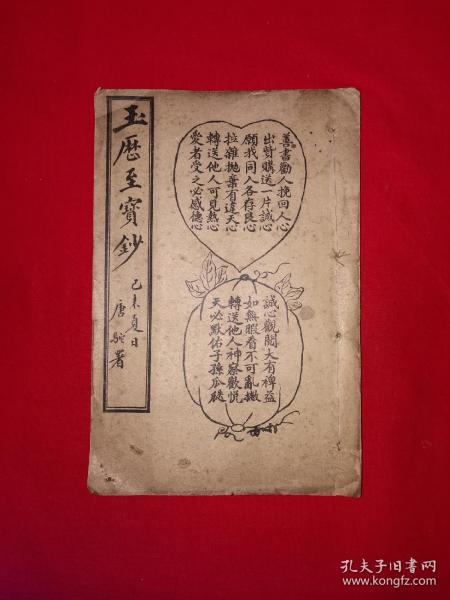 玉歷至寶鈔
己未夏日
唐駝署
善書勸人挽回人心
出貲購送一片誠心
願我同人各存良心
拉雜拋棄有違天心
轉送他人可見熱心
愛者受之必感德心
誠心觀閱大有裨益
如無暇看不可亂擲
轉送他人神察歡悅
天必默佑子孫瓜瓞
孔夫子旧书网
www.kongfz.com